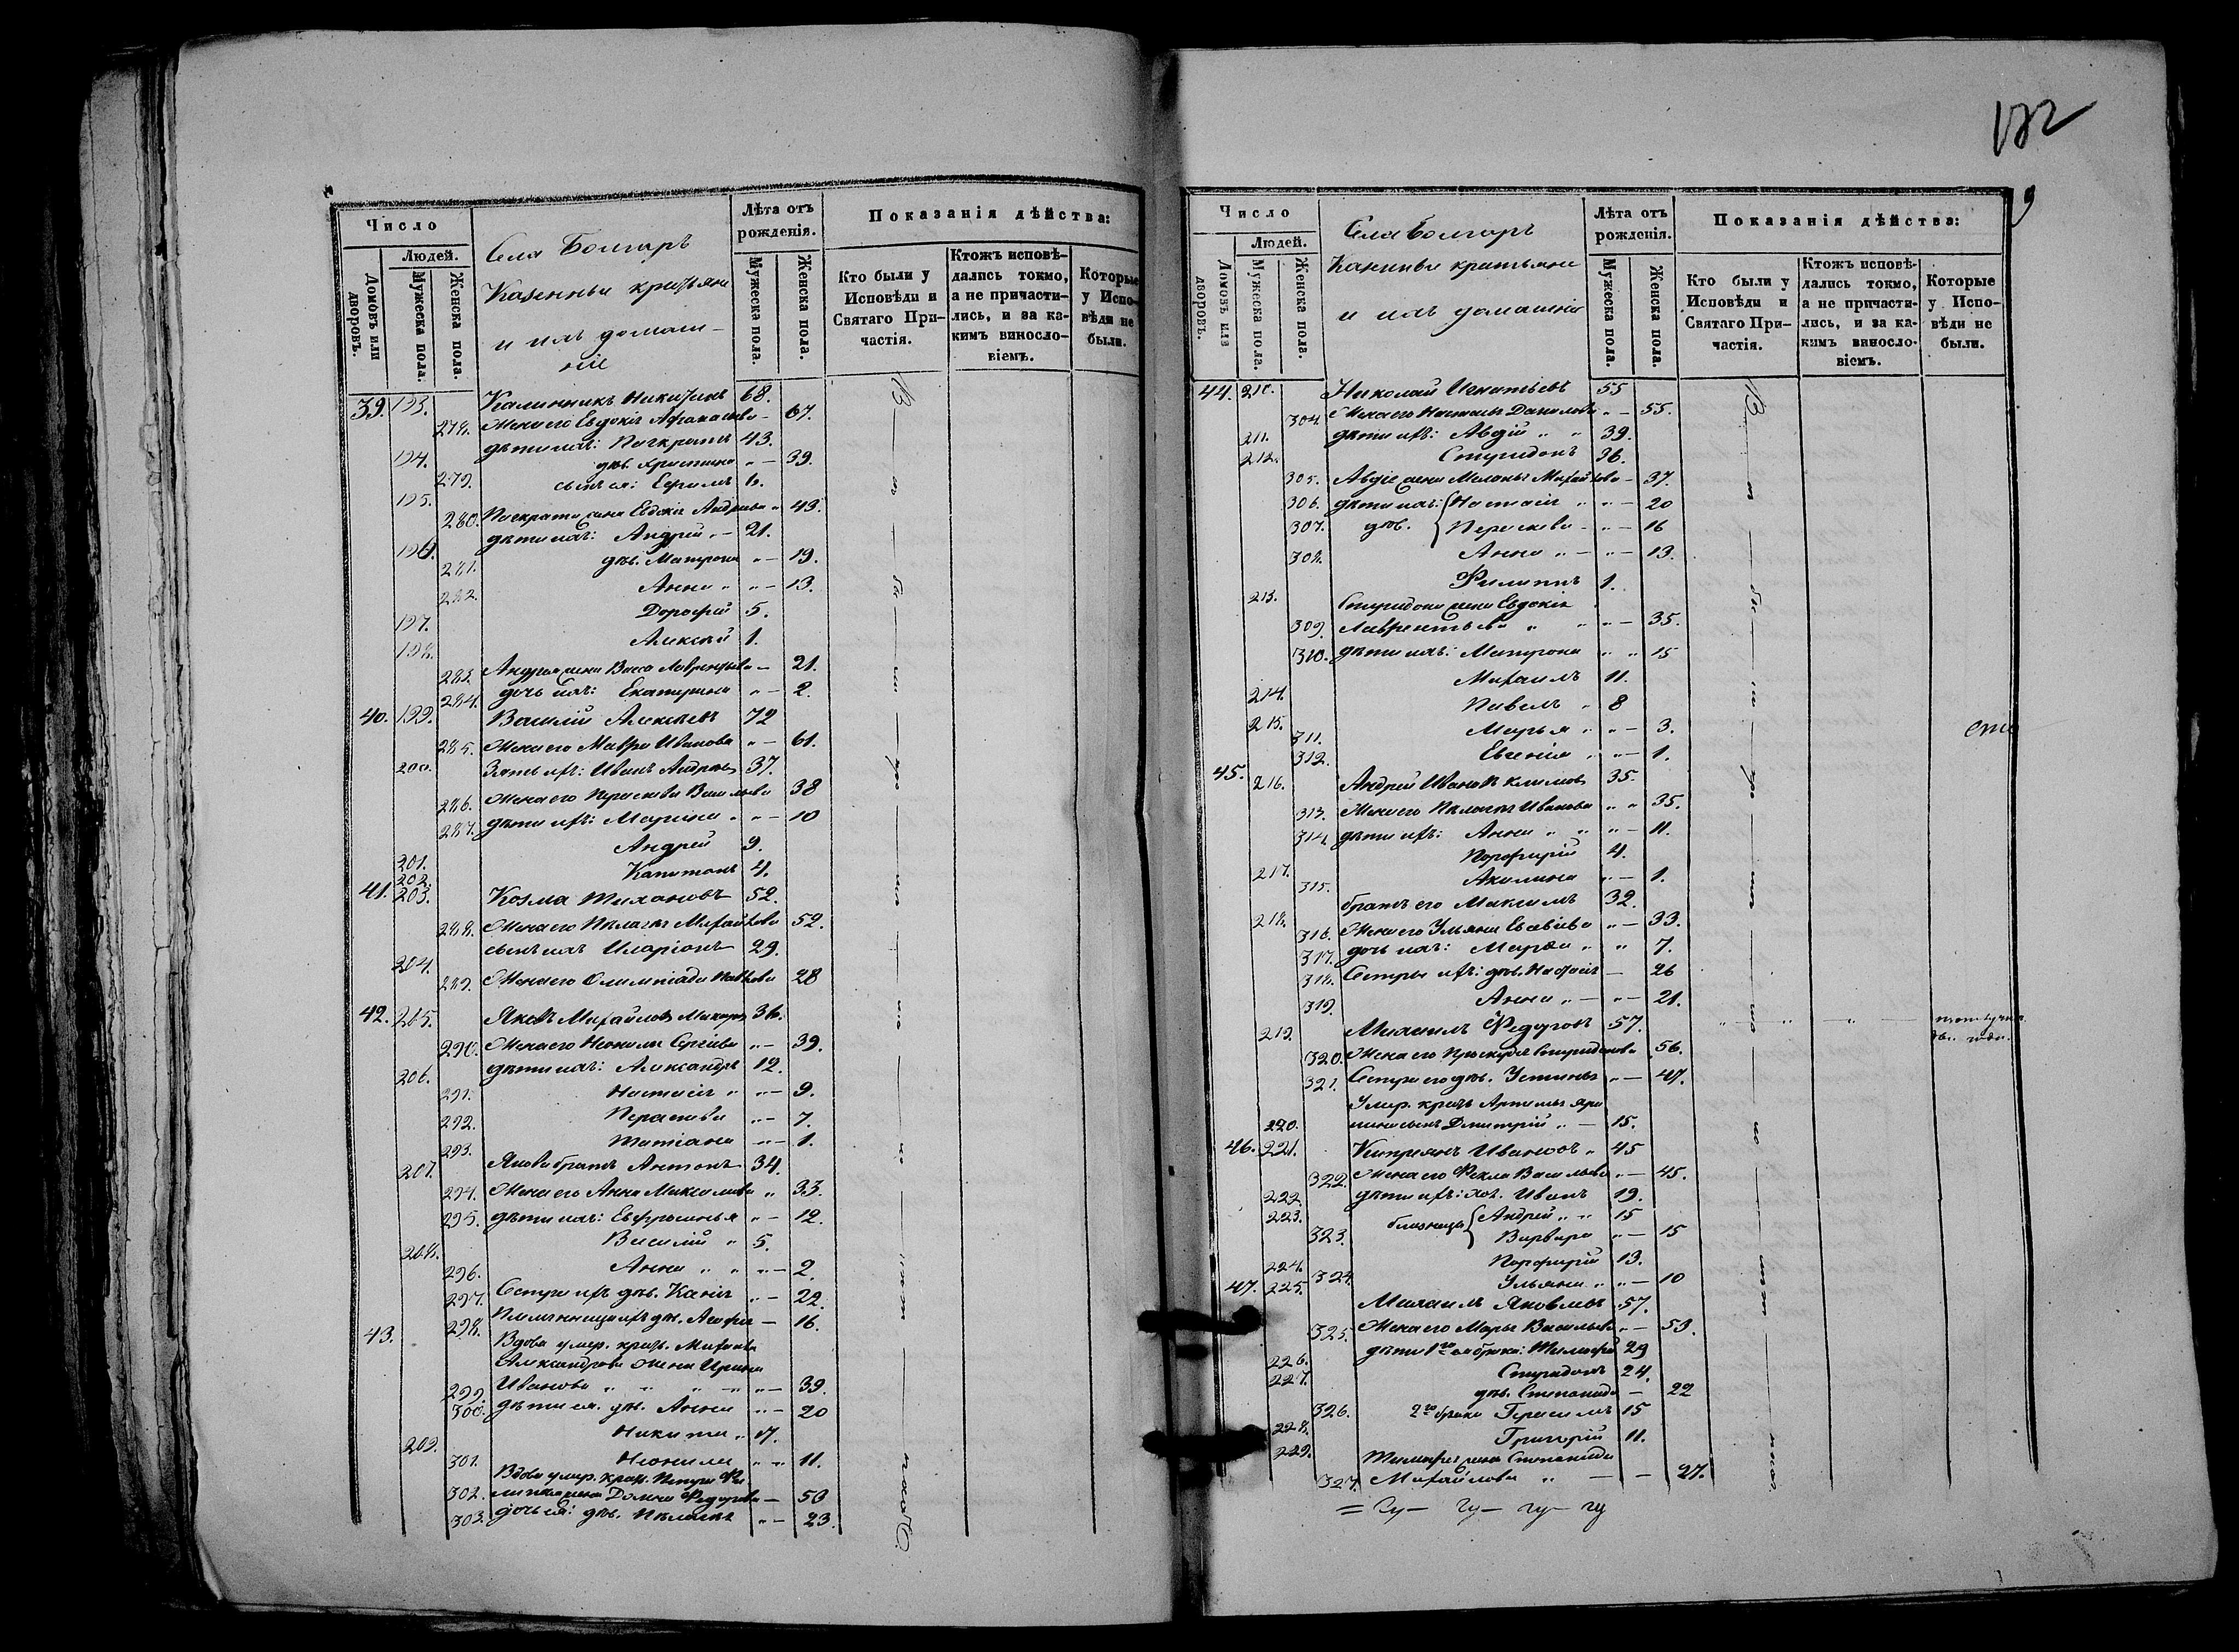 Число
Людей.
Домовъ или дворовъ.
Мужеска пола.
Женска пола.
Села Болгаръ
Казенныи крестьяне
и ихъ домаш-
ніе
Лѣта отъ рожденія.
Мужеска пола.
Женска пола.
Показанія дѣйства:
Кто были у Исповѣди и Святаго При-частія.
Ктожъ исповѣ-дались токмо, а не причасти-лись, и за ка-кимъ винносло-віемъ.
Которые у Испо-вѣди не были.
39. 193. Калинникъ Никитинъ 68.
278. Жена его Евдокія Афанасьева - 67.
194. дѣти ихъ: Панкратъ 43.
279. дѣв. Христина " - 39.
195. сынъ ея: Ефремъ 6.
280. Панкрата жена Евдокія Андреева " 43.
196. дѣти ихъ: Андрей " - 21.
281. дѣв. Матрона " - 19.
282. Анна " " - 13.
197. Дорофей 5.
198. Алексей 1.
283. Андрея жена Васса Лаврентьева - 21.
284. дочь ихъ: Екатерина " - 2.
40. 199. Василій Алексѣевъ 72
285. Жена его Мавра Иванова " - 61.
200. Зять ихъ: Иванъ Андреевъ 37.
286. Жена его Параскева Васильева 38
287. дѣти ихъ: Марина " " - 10
201. Андрей 9.
202. Капитонъ 4.
41. 203. Козма Тихановъ 52.
288. Жена его Пелагея Михайлова 52.
204. сынъ ихъ Иларіонъ 29.
289. Жена его Олимпіада 28
42. 205. Яковъ Михайловъ 36.
290. Жена его Неонила Сергѣева " - 39.
206. дѣти ихъ: Александръ 12.
291. Настасія " " - 9.
292. Параскева " - 7.
293. Татіана " - 1.
207. Якова братъ Антонъ 34.
294. Жена его Анна Максимова " 33.
295. дѣти ихъ: Евфросинья " - 12.
208. Василій " 5.
296. Анна " " " - 2.
297. Сестра ихъ дѣв. Ксенія " - 22.
298. Племянница ихъ дѣв. - 16.
43. Вдова умер. крест. Михаила
Александрова жена Ирина
299. Иванова " " " - " - 39.
300. дѣти ея. дѣв. Анна " - 20
209. Никита " 17.
301. Неонила " " 11.
Вдова умер. крест. Петра Фи
302. липпова жена Домна Федорова - 50
303. дочь ея: дѣв. Пелагея " - 23.
122
9
Число
Людей.
Домовъ или дворовъ.
Мужеска пола.
Женска пола.
Села Болгаръ
Казенныи крестьяне
и ихъ домашніе
Лѣта отъ рожденія.
Мужеска пола.
Женска пола.
Показанія дѣйства:
Кто были у Исповѣди и Святаго При-частія.
Ктожъ исповѣ-дались токмо, а не причасти-лись, и за ка-кимъ винносло-віемъ.
Которые у Испо-вѣди не были.
44. 210. Николай Игнатьевъ 55
304. Жена его Наталья Данилова " - 55.
211. дѣти ихъ: Авдій " " 39.
212. Спиридонъ 36.
305. Авдія жена Меланья Михайлова - 37.
306. дѣти ихъ: Настасія " " - 20
307. дѣв. Параскева - " - 16
308. Анна " - " - 13.
213. Филиппъ 1.
Спиридона жена Евдокія
309. Лаврентьева " " " - 35.
310. дѣти ихъ: Матрона " " 15
214. Михаилъ 11.
215. Павелъ " 8
311. Марья " " - 3.
312. Евгенія " " - 1.
45. 216. Андрей Ивановъ Климовъ 35.
313. Жена его Пелагея Иванова " " 35.
314. дѣти ихъ: Анна " " " - 11.
217. Порфирій 4.
315. Акилина " - 1.
218. братъ его Максимъ 32.
316. Жена его Ульяна " - 33.
317. дочь ихъ: Марѳа " " 7.
318. Сестры ихъ: дѣв. Настасія - 26
319. Анна " - " - 21.
219. Михаилъ Федоровъ 57.
320. Жена его Спиридонова 56.
321. Сестра его дѣв. Устинья " - 47.
Умер. крест.
220. сынъ Дмитрій " - 15.
46. 221. Кипріянъ Ивановъ " 45
322. Жена его Ѳекла Васильева " - 45.
222. дѣти ихъ: хол. Иванъ 19.
223. близнецы Андрей " " 15
323. Варвара " - 15
224. Порфирій 13.
324. Ульяна " " - 10
47. 225. Михаилъ Яковлевъ 57.
325. Жена его Марья Васильева " - 53.
226. дѣти 1го брака: Тимофей 29
227. Спиридонъ 24.
326. дѣв. Степанида - 22
228. 2го брака Герасимъ 15
229. Григорій 11.
Тимофея жена Степанида
327. Михайлова " - - 27.